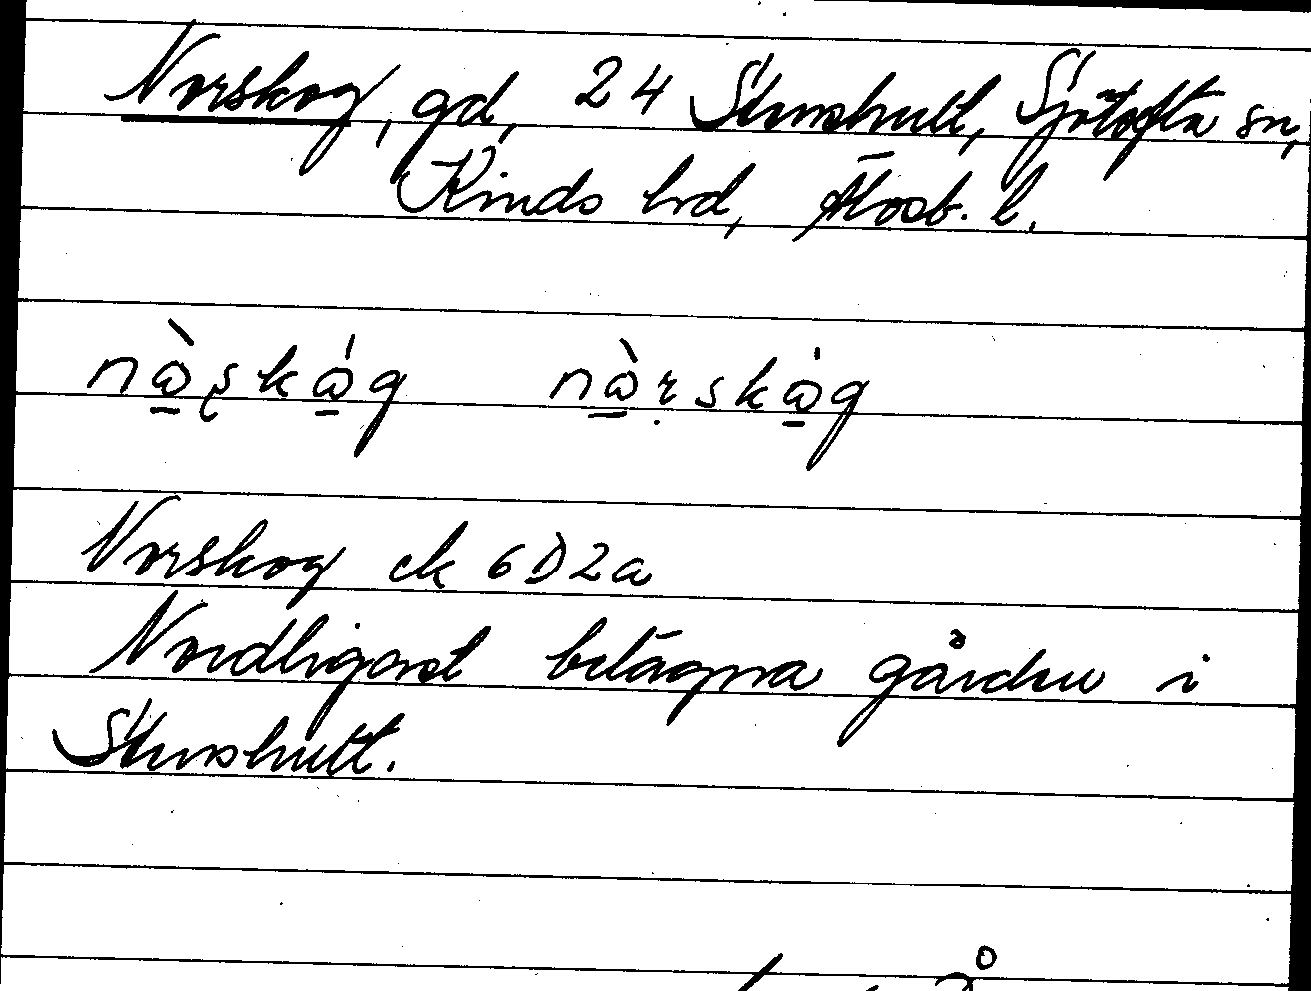 Norskog, gd, 24 Stenshult, Sjötofta sn,
Kinds hrd, Älvsb. l.
nò̱ʂkó̱g nò̱ṛskò̱g
Norskog ek 6D2a
Nordligast belägna gården i
Stenshult.